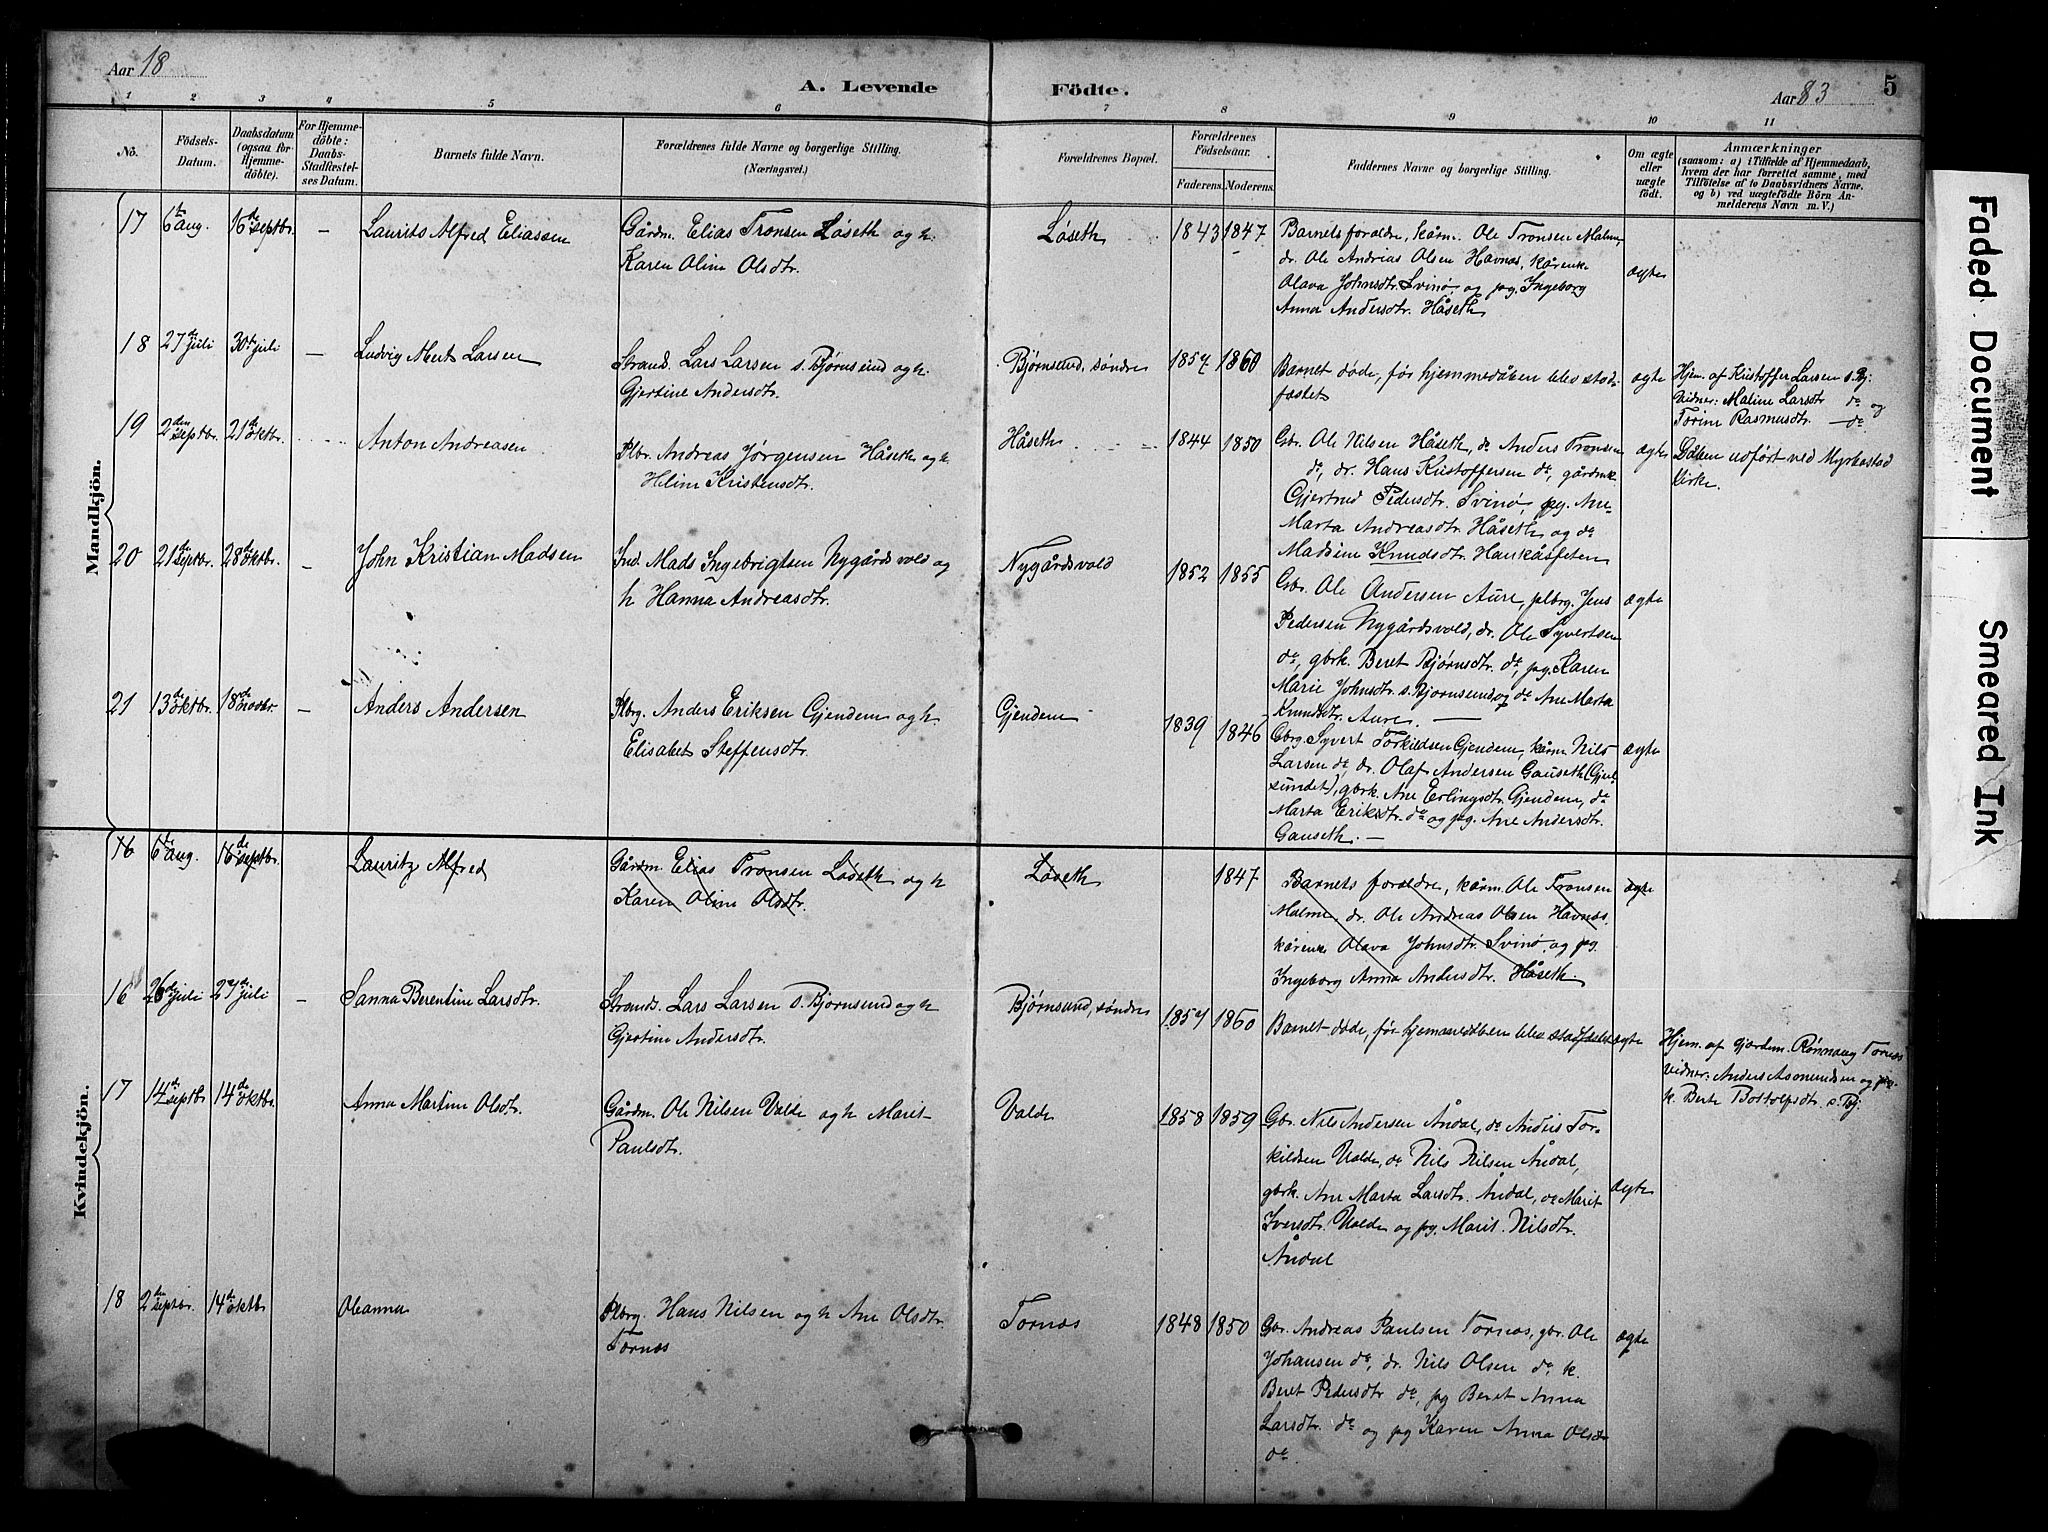 Aar 18
A. Levende Födte.
Aar 83 5
1 2 3 4 5 6 7 8 9 10 11
No. Födsels-Datum. Daabsdatum (ogsaa for Hjemme-döbte). For Hjemme-döbte: Daabs-Stadfæstel-ses Datum. Barnets fulde Navn. Forældrenes fulde Navne og borgerlige Stilling. (Næringsvei.) Forældrenes Bopæl. Forældrenes Födselsaar. Faderens. Moderens. Faddernes Navne og borgerlige Stilling. Om ægte eller uægte födt. Anmærkninger (saasom: a) i Tilfælde af Hjemmedaab, hvem der har forrettet samme, med Tilföielse af to Daabsvidners Navne, og b) ved uægtefödte Börn An-melderens Navn m. V.)
Mandkjön.
17 6te aug. 16de septbr. — Laurits Alfred Eliassen Gårdm. Elias Tronsen Løseth og h. Løseth 1843 1847 Barnets foraldre, kårm. Ole Tronsen Malme,
Karen Oline Olsdtr. dr. Ole Andreas Olsen Havnås, kårenke ægte
Olava Johnsdtr. Svinø, og pg. Ingeborg
Anna Andersdtr. Håseth
18 27de juli 30te juli — Ludvig Albert Larsen Strands. Lars Larsen s. Bjørnsund og h. Bjørnsund, søndre 1857 1860 Barnet døde, før hjemmedåben blev stad- ægte Hjem. af Kristoffer Larsen s. Bj.
Gjertine Andersdtr. fæstet vidner: Maline Larsdtr do og
Torine Rasmusdtr. — do
19 2den septbr. 21de oktbr. Anton Andreasen Plbr. Andreas Jørgensen Håseth og h. Håseth 1844 1850 Gbr. Ole Nilsen Håseth, do Anders Tronsen ægte Dåben udført ved Myrbostad
Heline Kristensdtr. do, dr. Hans Kristoffersen do, gårdmk. kirke.
Gjertrud Pedersdtr. Svinø, pg. Ane
Marta Andreasdtr. Håseth og do
Madsine Knudsdtr. Haukåsfeten
20 21de septbr. 28de oktbr. — John Kristian Madsen Ind. Mads Ingebrigtsen Nygårdsvold og Nygårdsvold 1852 1855 Gbr. Ole Andersen Aure, plbrg. Jens ægte
h Hanna Andreasdtr. Pedersen Nygårdsvold, dr. Ole Syvertsen
do, gbrk. Beret Bjørnsdtr. do, pg. Karen
Marie Johnsdtr. s. Bjørnsund og do Ane Marta
Knudsdtr. Aure. —
21 13de oktbr. 18de novbr. — Anders Andersen Plbrg. Anders Eriksen Gjendem og h. Gjendem 1839 1846 Gbrg. Syvert Torkildsen Gjendem, kårm Nils ægte
Elisabet Steffensdtr. Larsen do, dr. Olaf Andersen Gauseth (Gjul-
sundet), gbrk. Ane Erlingsdtr. Gjendem, do
Marta Eriksdtr. do og pg. Ane Andersdtr.
Gauseth. —
Kvindekjön.
16 6te aug. 16de septbr. Lauritz Alfred Gårdm. Elias Tronsen Løseth og h Løseth 1847 Barnets foraldre, kårm. Ole Tronsen ægte
Karen Oline Olsdtr. Malme, dr. Ole Andreas Olsen Havnås,
kårenke Olava Johnsdtr. Svinø, og pg.
Ingeborg Anna Andersdtr. Håseth.
16 26de juli 27de juli — Sanna Berentine Larsdtr. Strands. Lars Larsen s. Bjørnsund og h Bjørnsund, søndre 1857 1860 Barnet døde, før hjemmedåben blev stadfæstet ægte Hjem. af gjordem. Rønnaug Tornes
Gjertine Andersdtr. vidner: Anders Asmundsen og
k. Berte Bottolfsdtr. s. Bj.
17 14de septbr 14de oktbr. Anna Martine Olsdtr. Gårdm. Ole Nilsen Valde og h Marit Valde 1858 1859 Gbr. Nils Andersen Åndal, do Anders Tor-
Paulsdtr. kildsen Valde, do Nils Nilsen Åndal,
gbrk. Ane Marta Larsdtr. Åndal, do Marit ægte
Iversdtr. Valde og pg. Marit Nilsdtr.
Åndal
18 2den septbr. 14de oktbr Oleanna Plbrg. Hans Nilsen og h Ane Olsdtr. Tornæs 1848 1850 Gbr. Andreas Paulsen Tornæs, gbr. Ole ægte
Tornæs Johansen do, dr. Nils Olsen do, k.
Beret Pedersdtr do, pg Beret Anna
Larsdtr. do og pg Karen Anna Olsdtr
do
Faded Document Smeared Ink